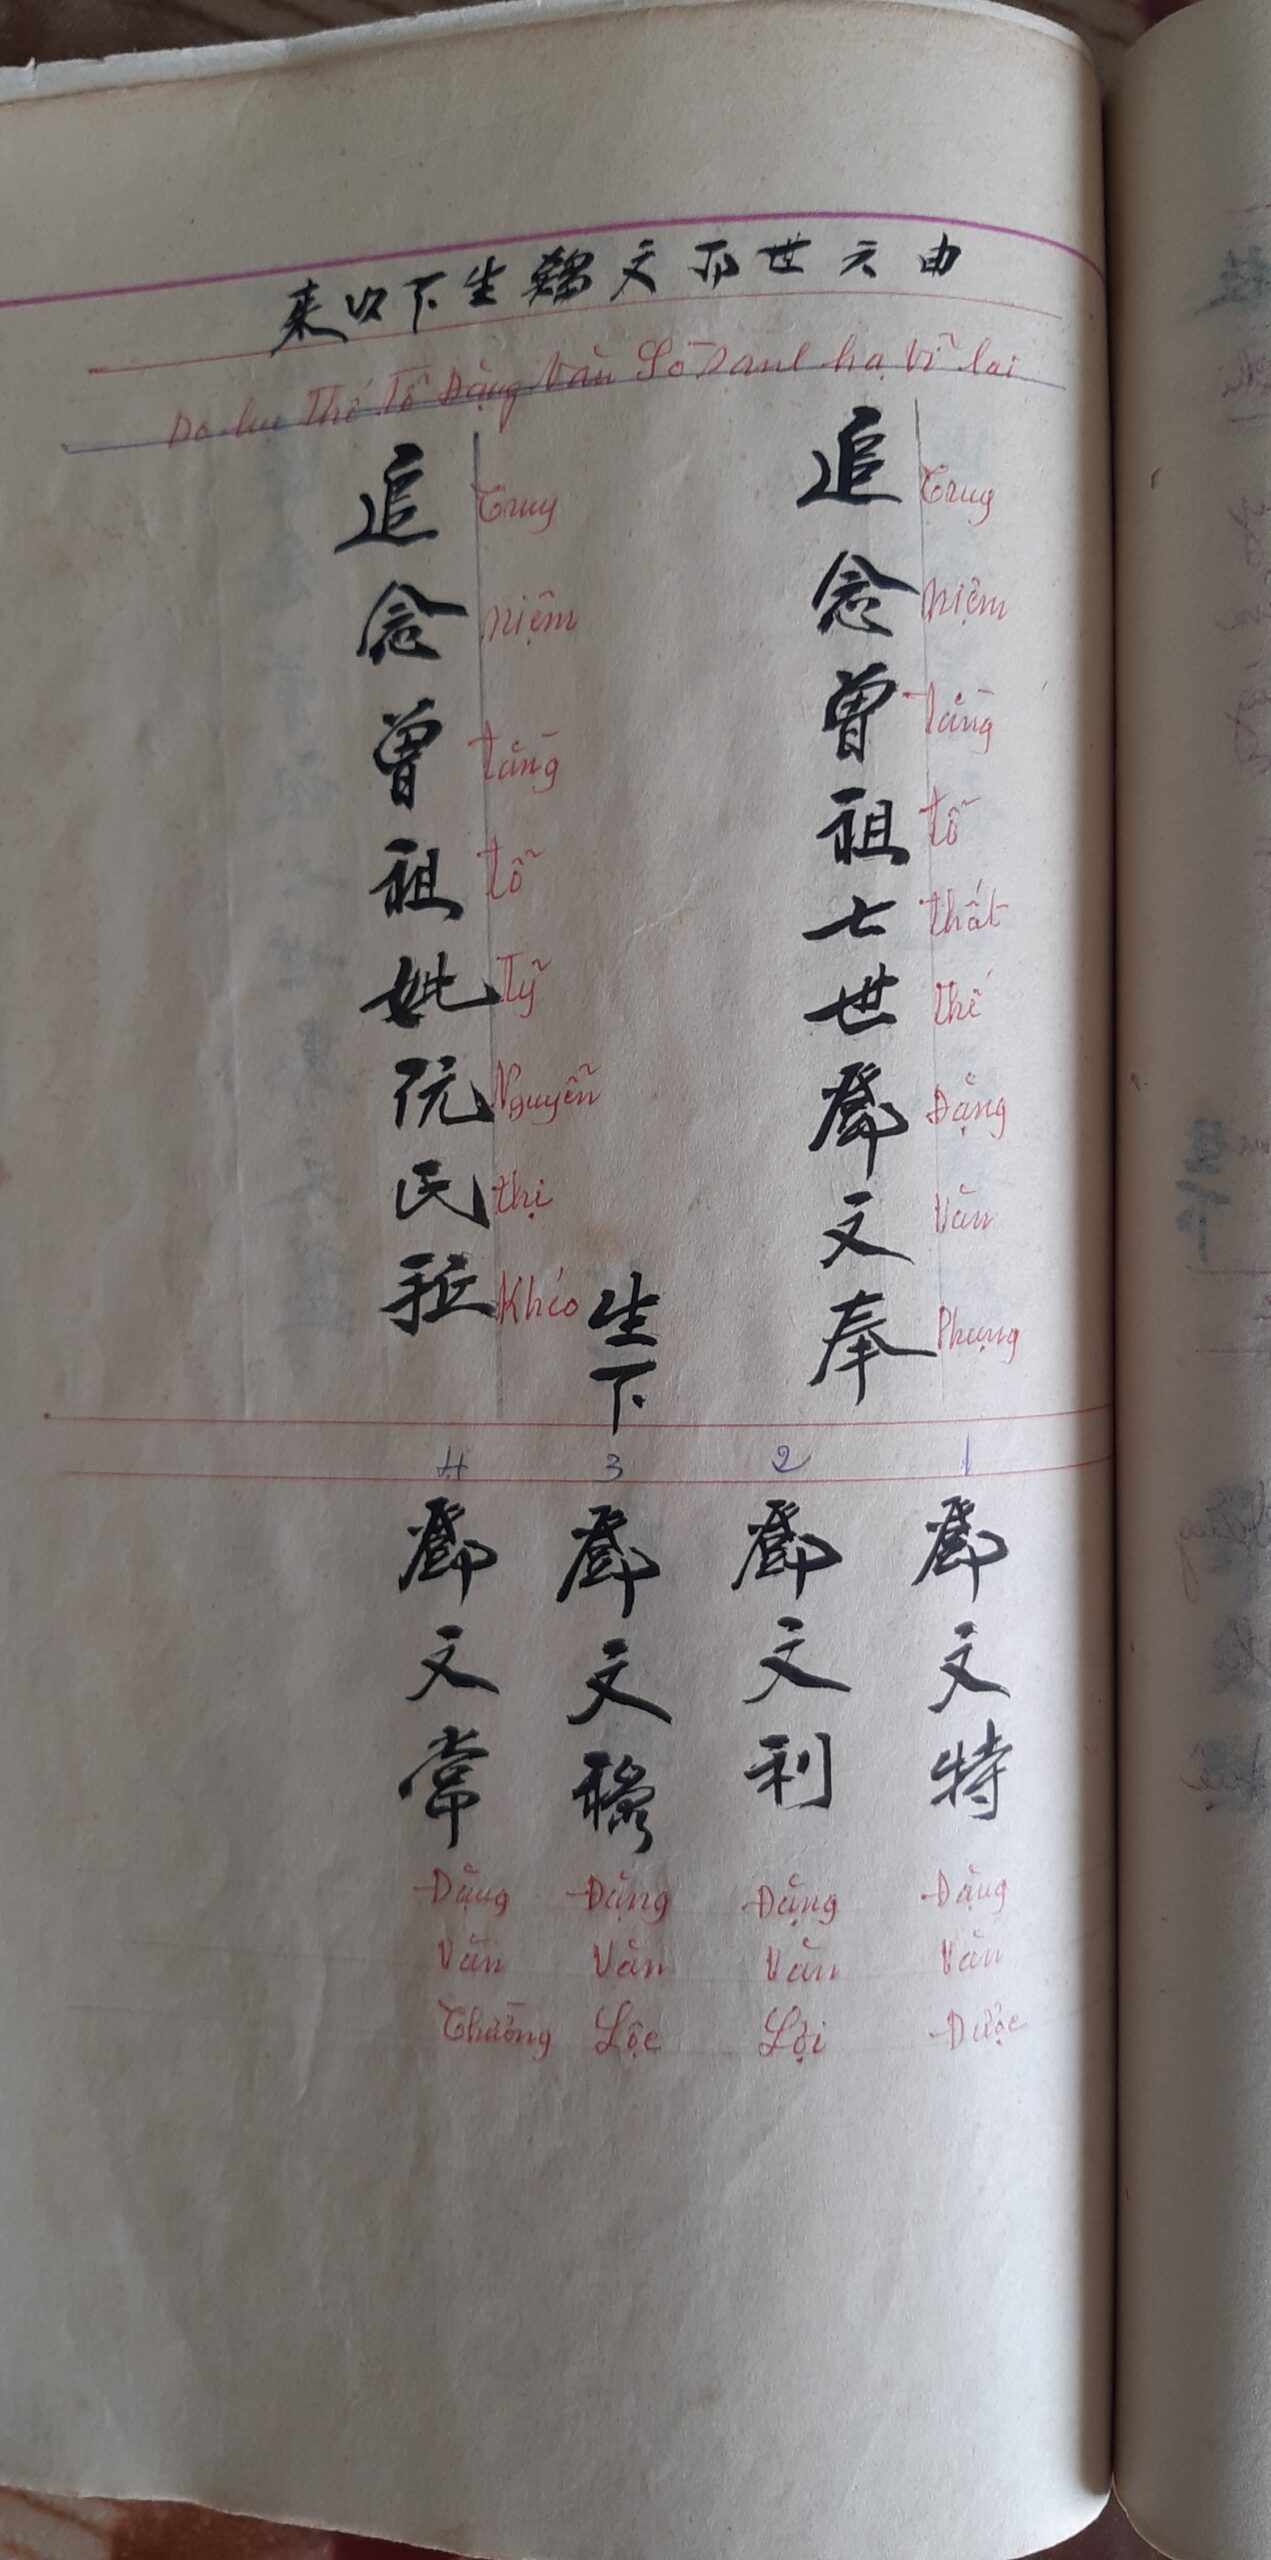 由六世祖文𫑛生下以來
Do lục Thế Tổ Đặng Văn Sö Sanh hạ Vĩ lai
追念曾祖七世鄧文奉
Truy niệm tằng tỗ thất thế Đặng Văn Phụng
生下
追念曾祖妣阮氏
Truy niệm tằng tỗ Tỹ Nguyễn thị Khéo
1
鄧文特
Đặng Văn Được
2
鄧文利
Đặng Văn Lợi
3
鄧文穆
Đặng Văn Lộc
4
鄧文常
Đặng Văn Thường